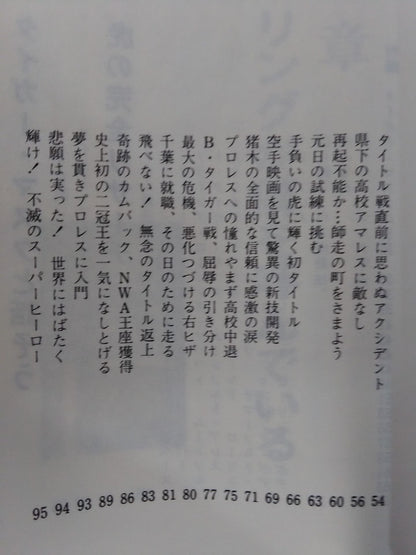 タイトル戦直前に思わぬアクシデント 54
県下の高校アマレスに敵なし 56
再起不能か…師走の町をさまよう 60
元日の試練に挑む 63
手負いの虎に輝く初タイトル 66
空手映画を見て驚異の新技開発 69
猪木の全面的な信頼に感激の涙 71
プロレスへの憧れやまず高校中退 75
B・タイガー戦、屈辱の引き分け 77
最大の危機、悪化つづける右ヒザ 80
千葉に就職、その日のために走る 81
飛べない！　無念のタイトル返上 83
奇跡のカムバック、NWA王座獲得 86
史上初の二冠王を一気になしとげる 89
夢を貫きプロレスに入門 93
悲願は実った！　世界にはばたく 94
輝け！　不滅のスーパーヒーロー 95